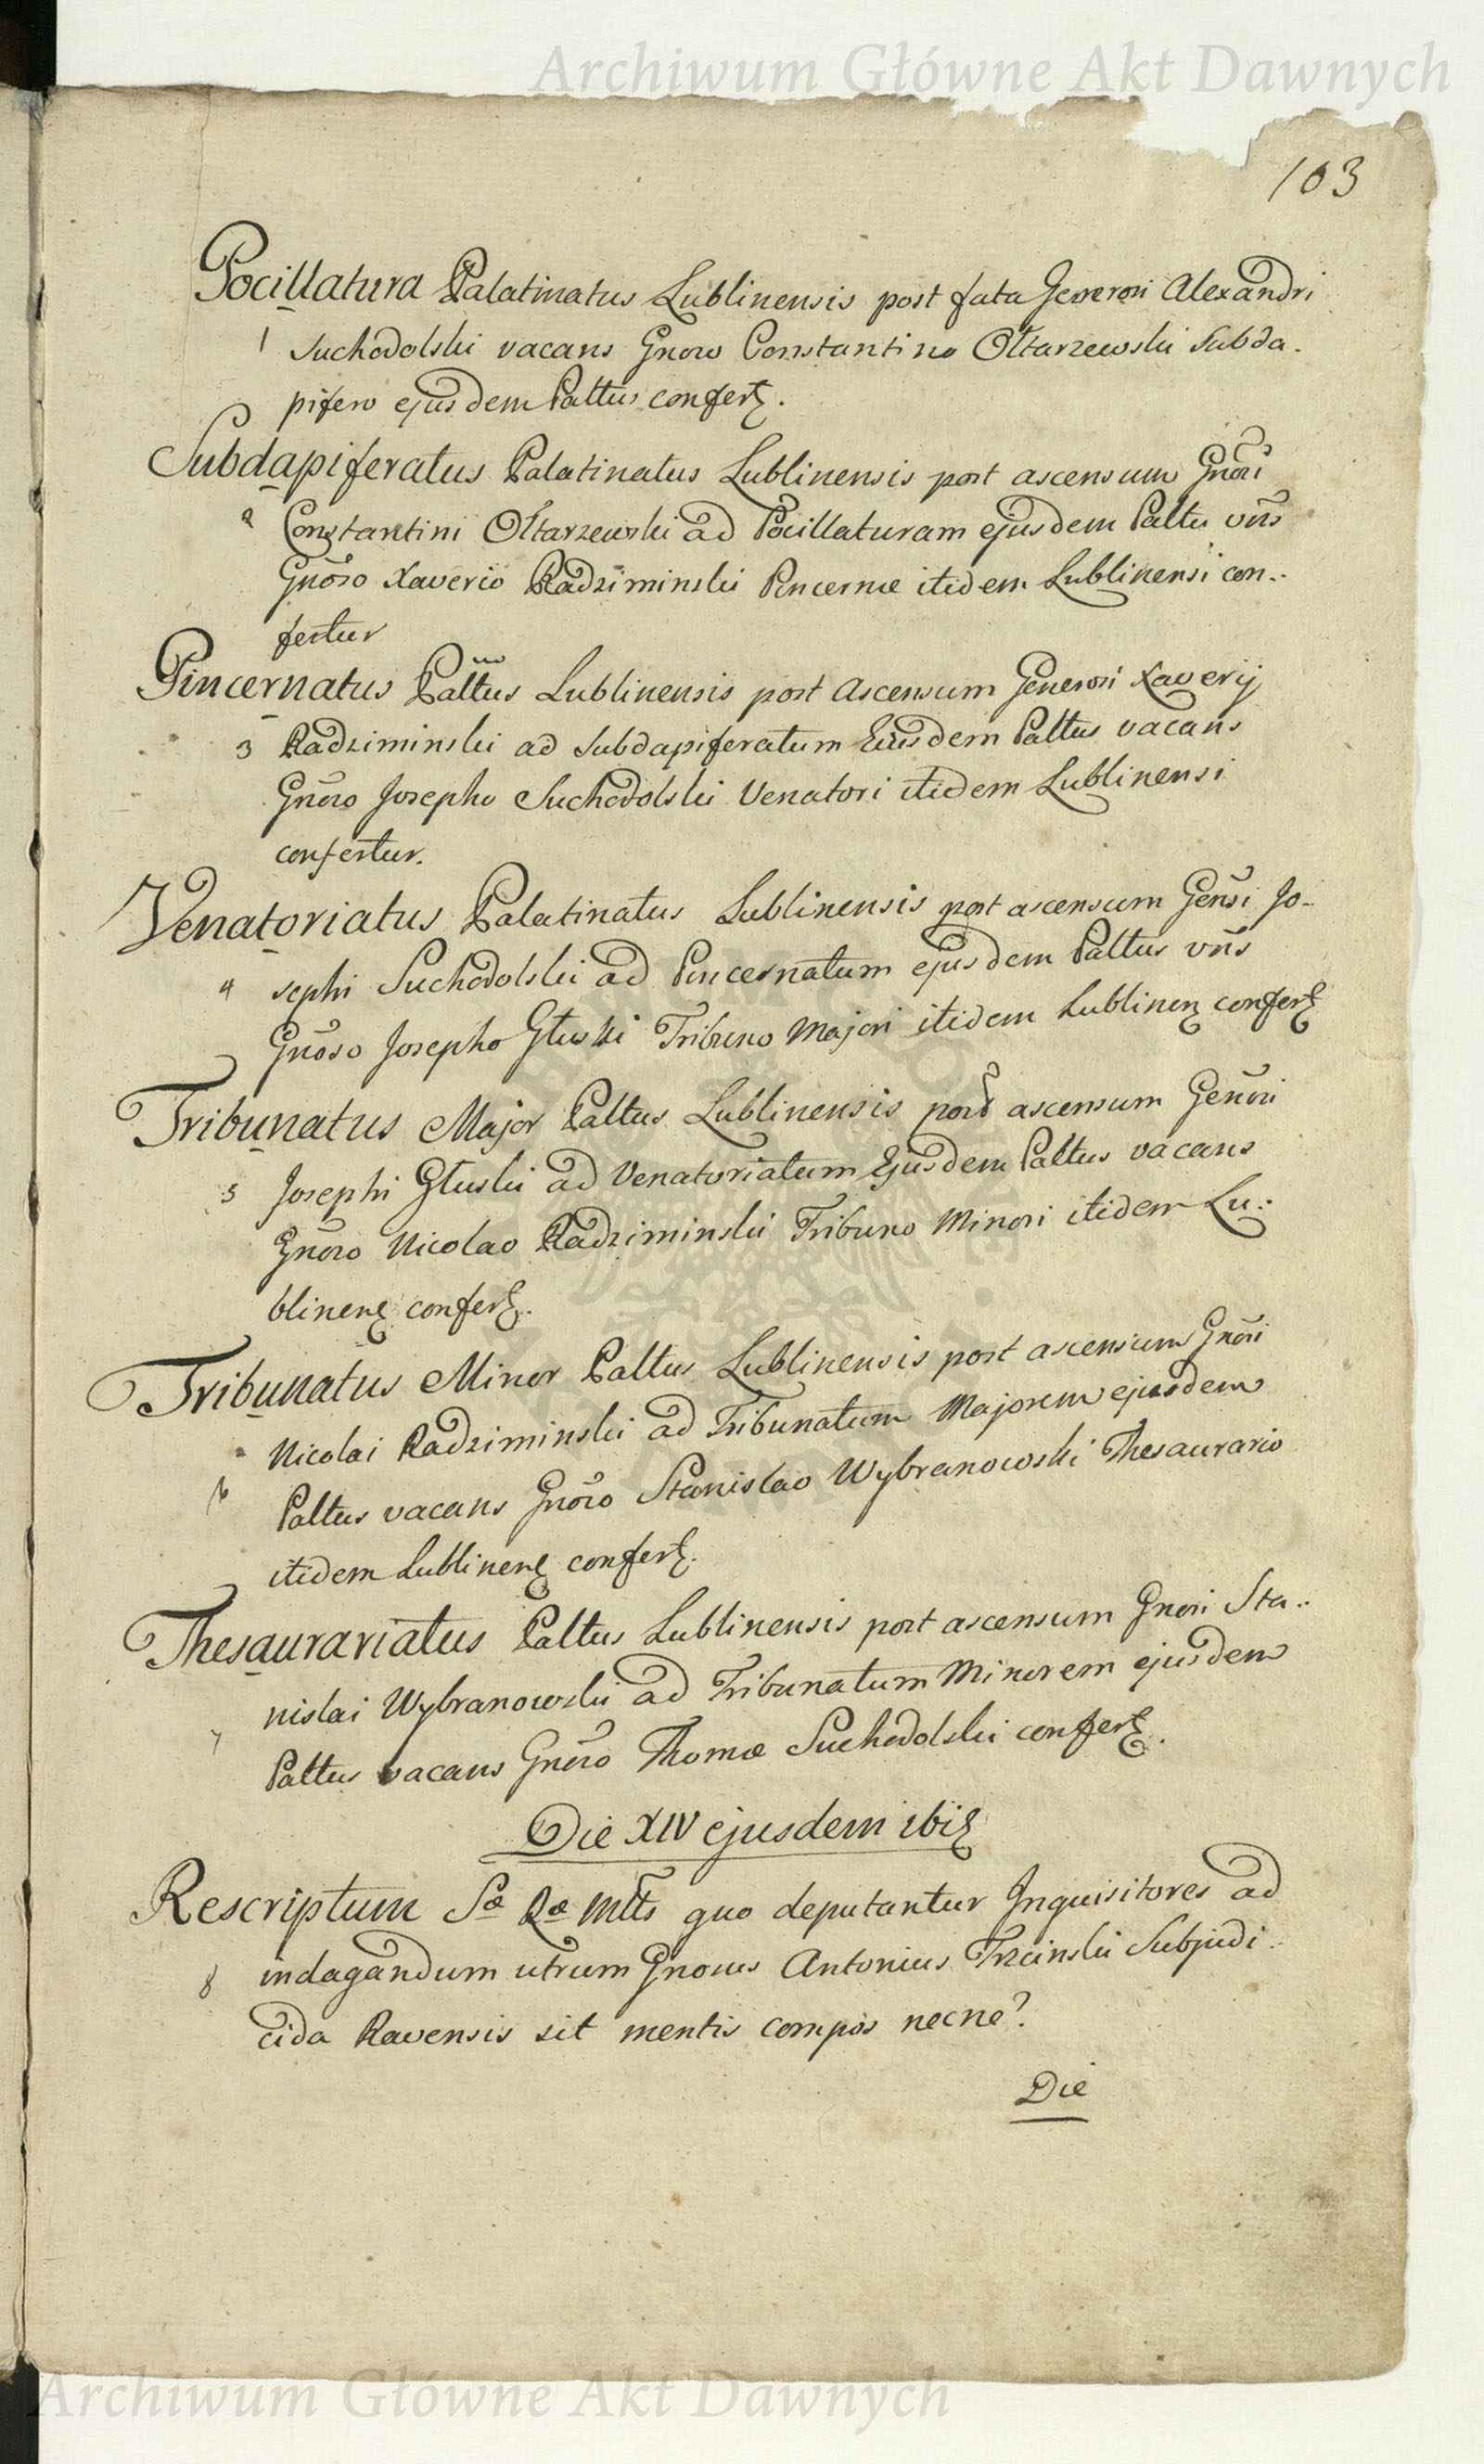 Archiwum Główne Akt Dawnych
103
Pocillatura Palatinatus Lublinensis post fata Generosi Alexandri
1 Suchodolski vacans Gnoso Constantino Ołtarzewski Subda-
pifero ejusdem Paltus confert.
Subdapiferatus Palatinatus Lublinensis post ascensum Gnosi
2 Constantini Ołtarzewski ad Pocillaturam ejusdem Paltu vns
Gnoso Xaverio Radziminski Pincernæ itidem Lublinensi con-
fertur
Pincernatus Paltus Lublinensis post Ascensum Generosi Xaverij
3 Radziminski ad Subdapiferatum Ejusdem Paltus vacans
Gnoso Josepho Suchodolski Venatori itidem Lublinensi
confertur.
Venatoriatus Palatinatus Lublinensis post ascensum Gensi Jo-
4 sephi Suchodolski ad Pincernatum ejusdem Paltus vns
Gnoso Josepho Głuski Tribuno Majori itidem Lublinen confert
Tribunatus Major Paltus Lublinensis post ascensum Genosi
5 Josephi Głuski ad Venatoriatum Ejusdem Paltus vacans
Gnoso Nicolao Radziminski Tribuno Minori itidem Lu-
blinen confert.
Tribunatus Minor Paltus Lublinensis post ascensum Gnosi
Nicolai Radziminski ad Tribunatum Majorem ejusdem
6 Paltus vacans Gnoso Stanislao Wybranowski Thesaurario
itidem Lublinen confert.
Thesaurariatus Paltus Lublinensis post ascensum Gnosi Sta-
nislai Wybranowski ad Tribunatum Minorem ejusdem
7 Paltus vacans Gnoso Thomæ Suchodolski confert.
Die XIV ejusdem ibid
Rescriptum Sæ Ræ Mttis quo deputantur Inquisitores ad
8 indagandum utrum Gnosus Antonius Trzcinski Subjudi-
cida Ravensis sit mentis compos necne?
Die
Archiwum Główne Akt Dawnych